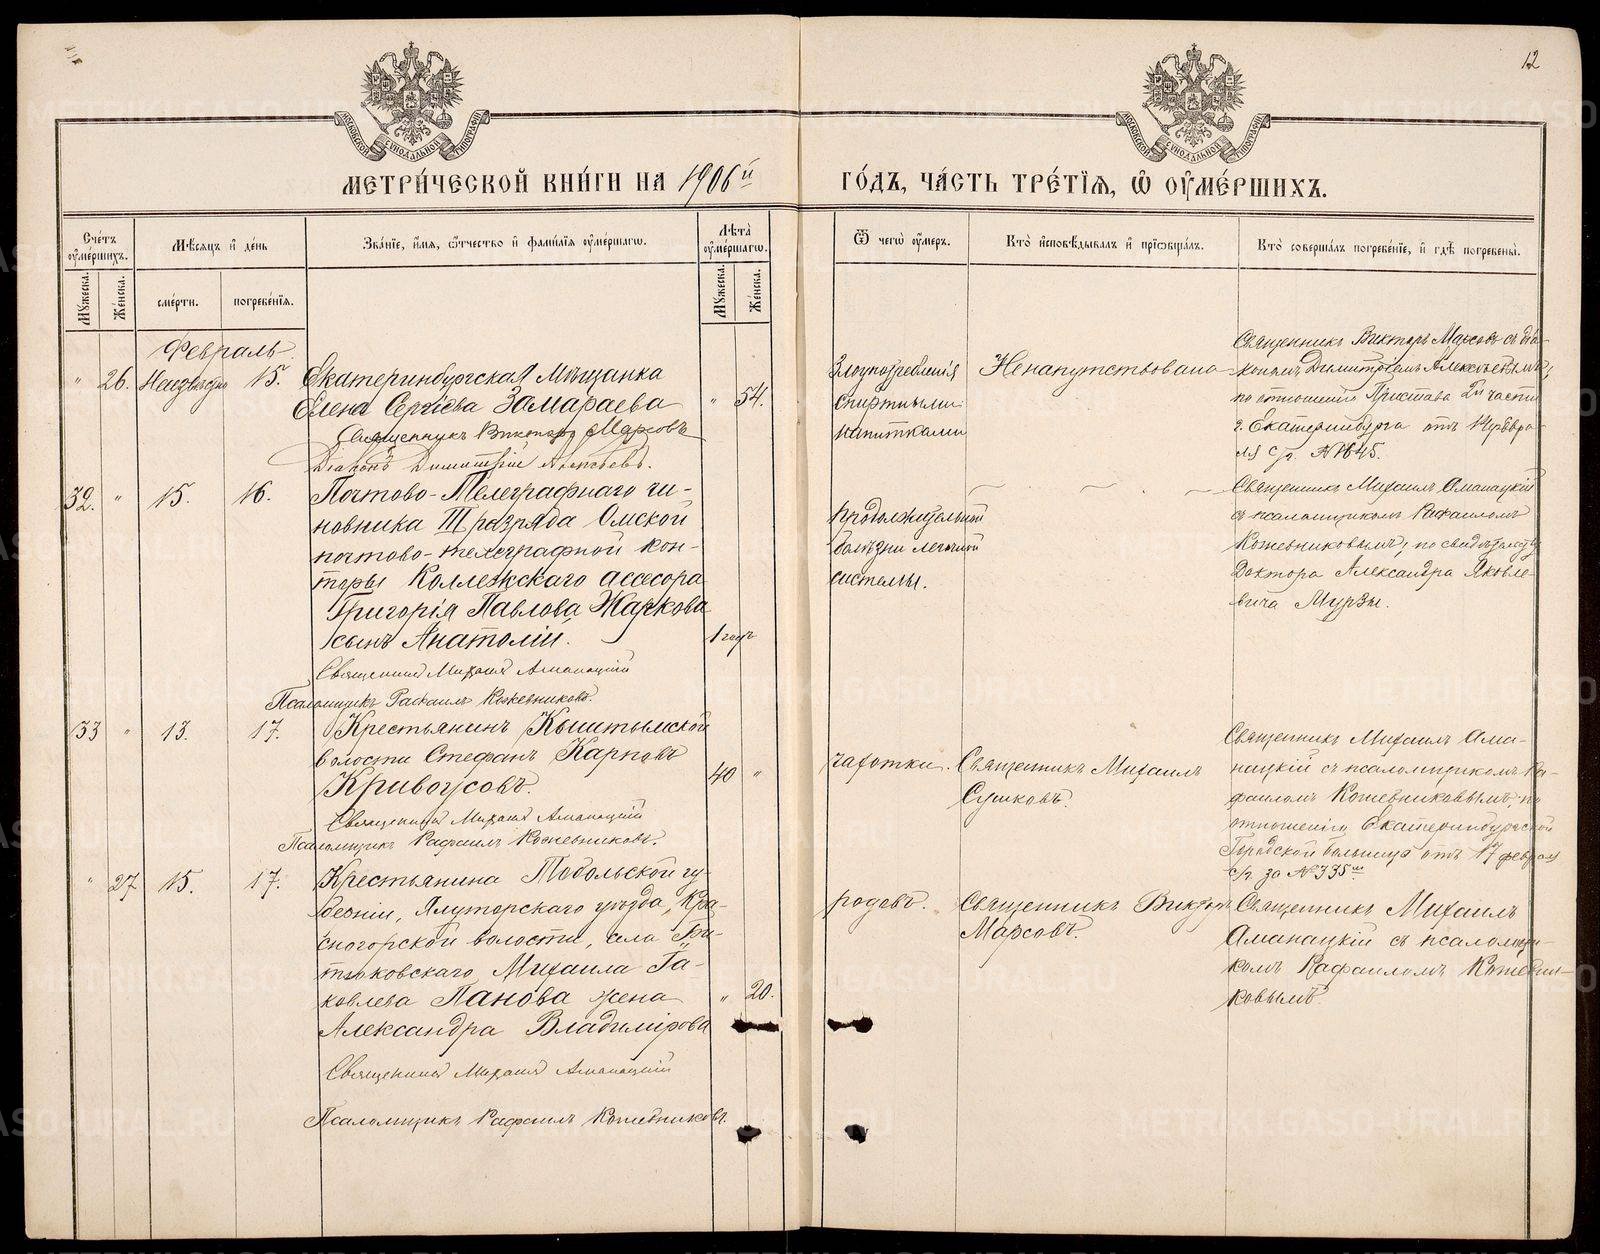 12
МОСКОВСКОЙ СѴНОДАЛЬНОЙ ТИПОГРАФІИ
МОСКОВСКОЙ СѴНОДАЛЬНОЙ ТИПОГРАФІИ
МЕТРИ́ЧЕСКОЙ КНИ́ГИ НА 1906й ГО́ДЪ, ЧА́СТЬ ТРЕ́ТІѦ, Ѡ҆ ОУ҆МЕ́РШИХЪ.
Сче́тъ оу҆ме́ршихъ.
Мѣ́сѧцъ и҆ де́нь
Зва́нїе, и҆́мѧ, ѻ҆́тчество и҆ фами́лїѧ оу҆ме́ршагѡ.
Лѣ́та оу҆ме́ршагѡ.
Ѿ чегѡ̀ оу҆́меръ.
Кто̀ и҆сповѣ́дывалъ и҆ прїѡбща́лъ.
Кто̀ соверша́лъ погребе́нїе, и҆ гдѣ̀ погребены̀.
Му́жеска.
Же́нска.
сме́рти.
погребе́нїѧ.
Му́жеска.
Же́нска.
Февраль.
" 26. Неизвѣстно 15. Екатеринбургская мѣщанка
Елена Сергіева Замараева " 54.
Священникъ Викторъ Марсовъ
Діаконъ Димитрій Алексѣевъ.
Злоупотребленія
спиртными
напитками
Ненапутствована
Священникъ Викторъ Марсовъ съ діа-
кономъ Димитріемъ Алексѣевымъ;
по отношенію Пристава 2й части
г. Екатеринбурга отъ 14 февра-
ля с/г. №
32. " 15. 16. Почтово-Телеграфнаго чи-
новника III разряда Омской
почтово-телеграфной кон-
торы Коллежскаго ассесора
Григорія Павлова Жаркова
сынъ Анатолій. 1 годъ
Священникъ Михаилъ Аманацкій
Псаломщикъ Рафаилъ Кожевниковъ.
продолжительной
болѣзни легочной
системы.
Священникъ Михаилъ Аманацкій
съ псаломщикомъ Рафаиломъ
Кожевниковымъ; по свидѣтельству
Доктора Александра Яковле-
вича Мурзы.
33 " 13. 17. Крестьянинъ Кыштымской
волости Стефанъ Карповъ
Кривоусовъ. 40 "
Священникъ Михаилъ Аманацкій
Псаломщикъ Рафаилъ Кожевниковъ.
чахотки.
Священникъ Михаилъ
Сушковъ.
Священникъ Михаилъ Ама-
нацкій съ псаломщикомъ Ра-
фаиломъ Кожевниковымъ, по
отношенію Екатеринбургской
Городской больницы отъ 17 февраля
с/г. за № 335
" 27 15. 17. Крестьянина Тобольской гу-
берніи, Ялуторскаго уѣзда, Кра-
сногорской волости, села
Михаила Іа-
ковлева Панова жена " 20.
Александра Владимірова
Священникъ Михаилъ Аманацкій
Псаломщикъ Рафаилъ Кожевниковъ.
родовъ.
Священникъ Викторъ
Марсовъ.
Священникъ Михаилъ
Аманацкій съ псаломщи-
комъ Рафаиломъ Кожевни-
ковымъ.
METRIKI.GASO-URAL.RU